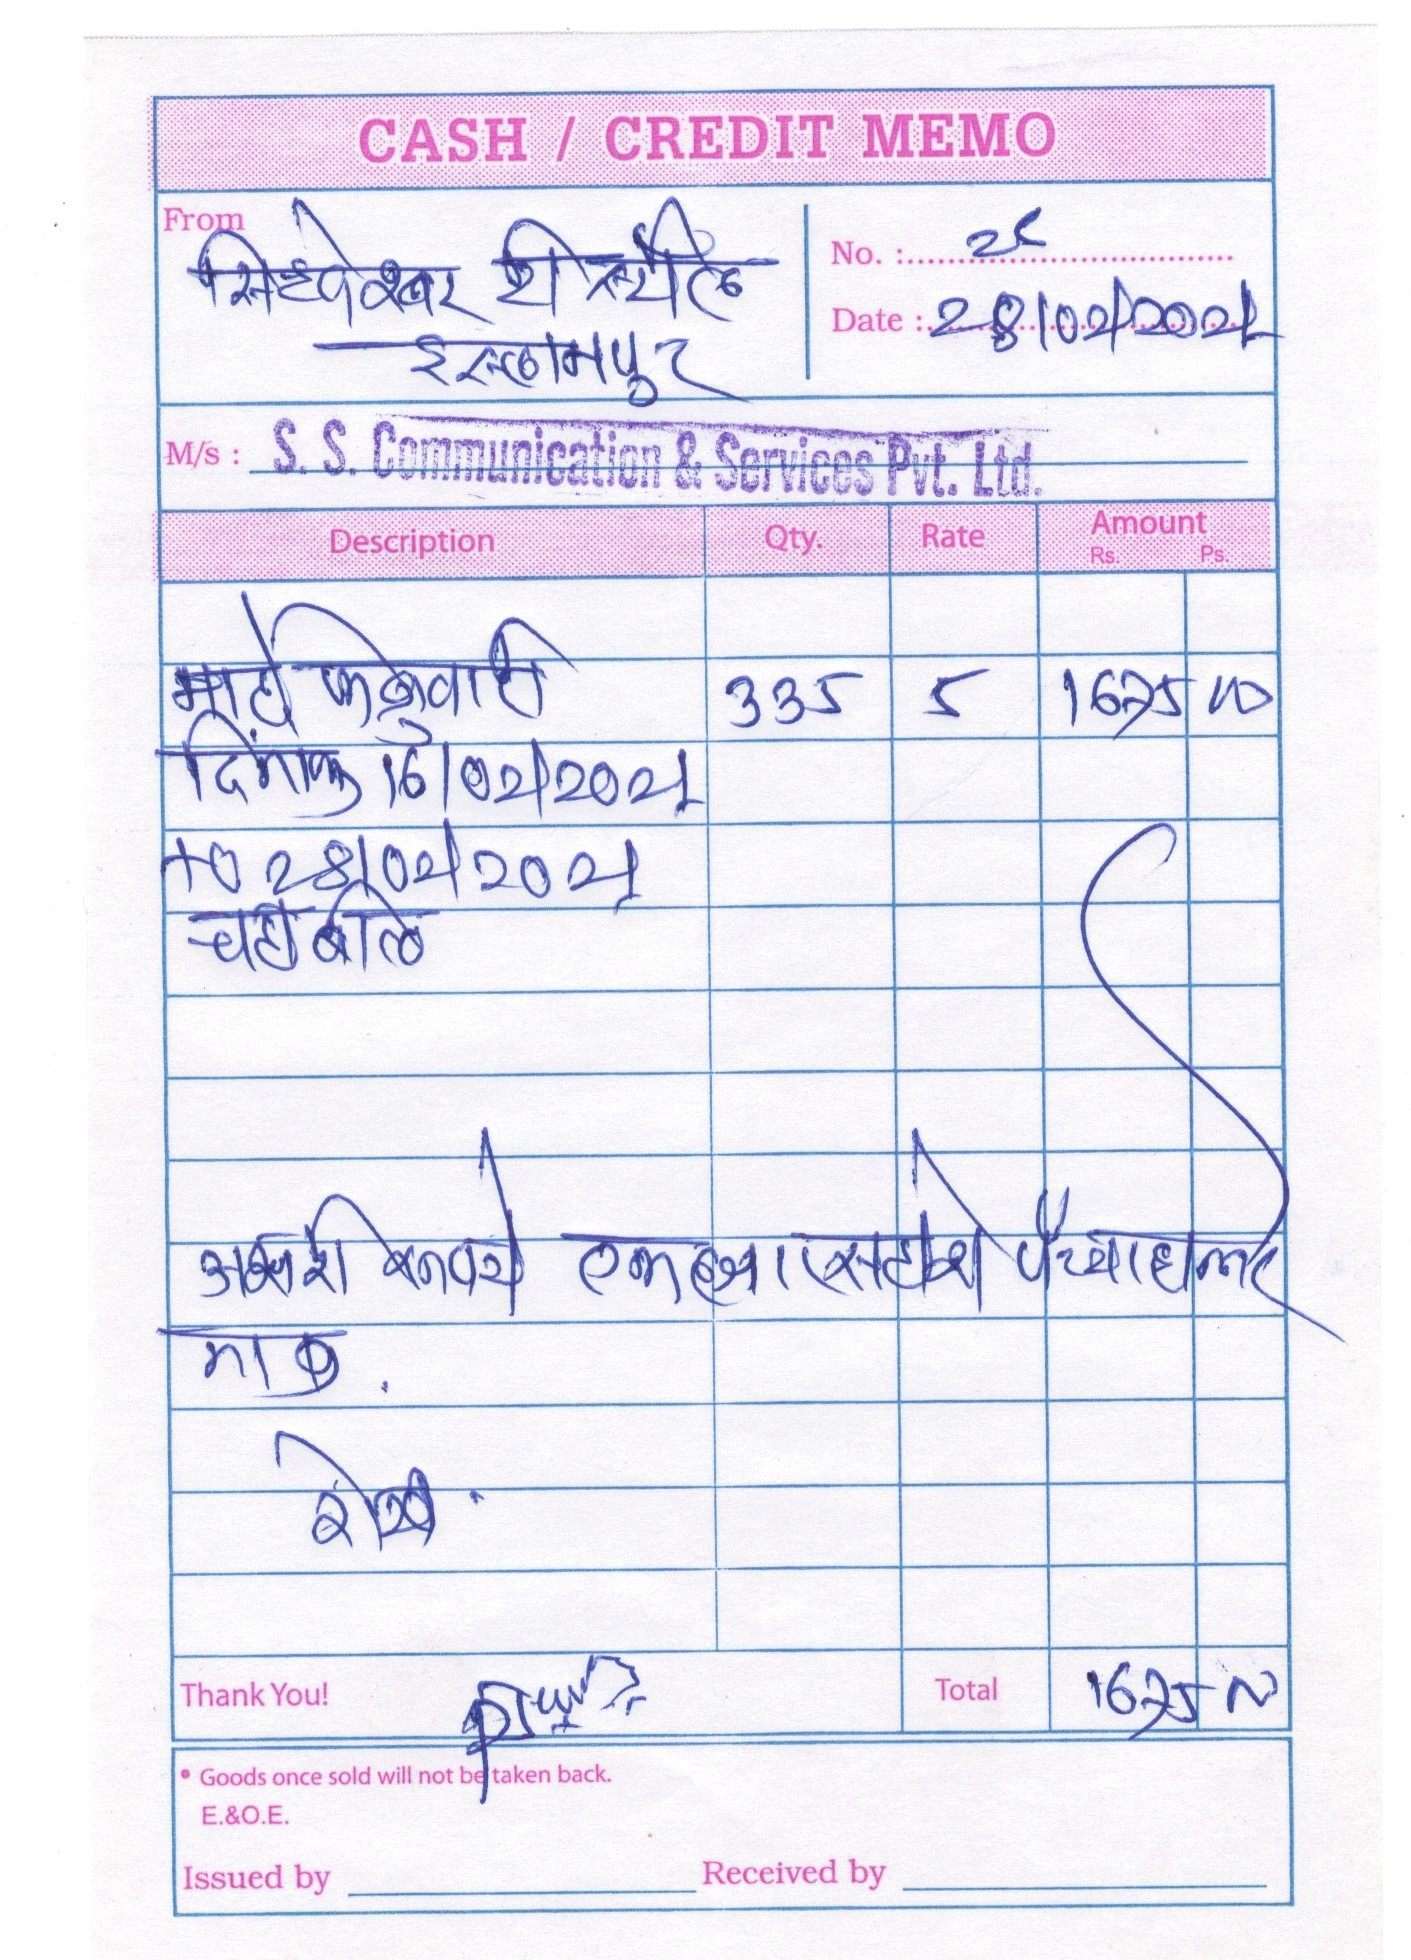 CASH / CREDIT MEMO
From
सिध्देश्वर टी स्टॉल
इस्लामपुर
No. : 25
Date : 28/02/2021
M/s : S. S. Communication & Services Pvt. Ltd.
Description Qty. Rate Amount
Rs. Ps.
माहे फेब्रुवारी 335 5 1675 00
दिनांक 16/02/2021
to 28/02/2021
चहा बील
अक्षरी रुपये एक हजार सहाशे पंच्याहत्तर
मात्र.
Thank You! Total 1675 00
• Goods once sold will not be taken back.
E.&O.E.
Issued by Received by